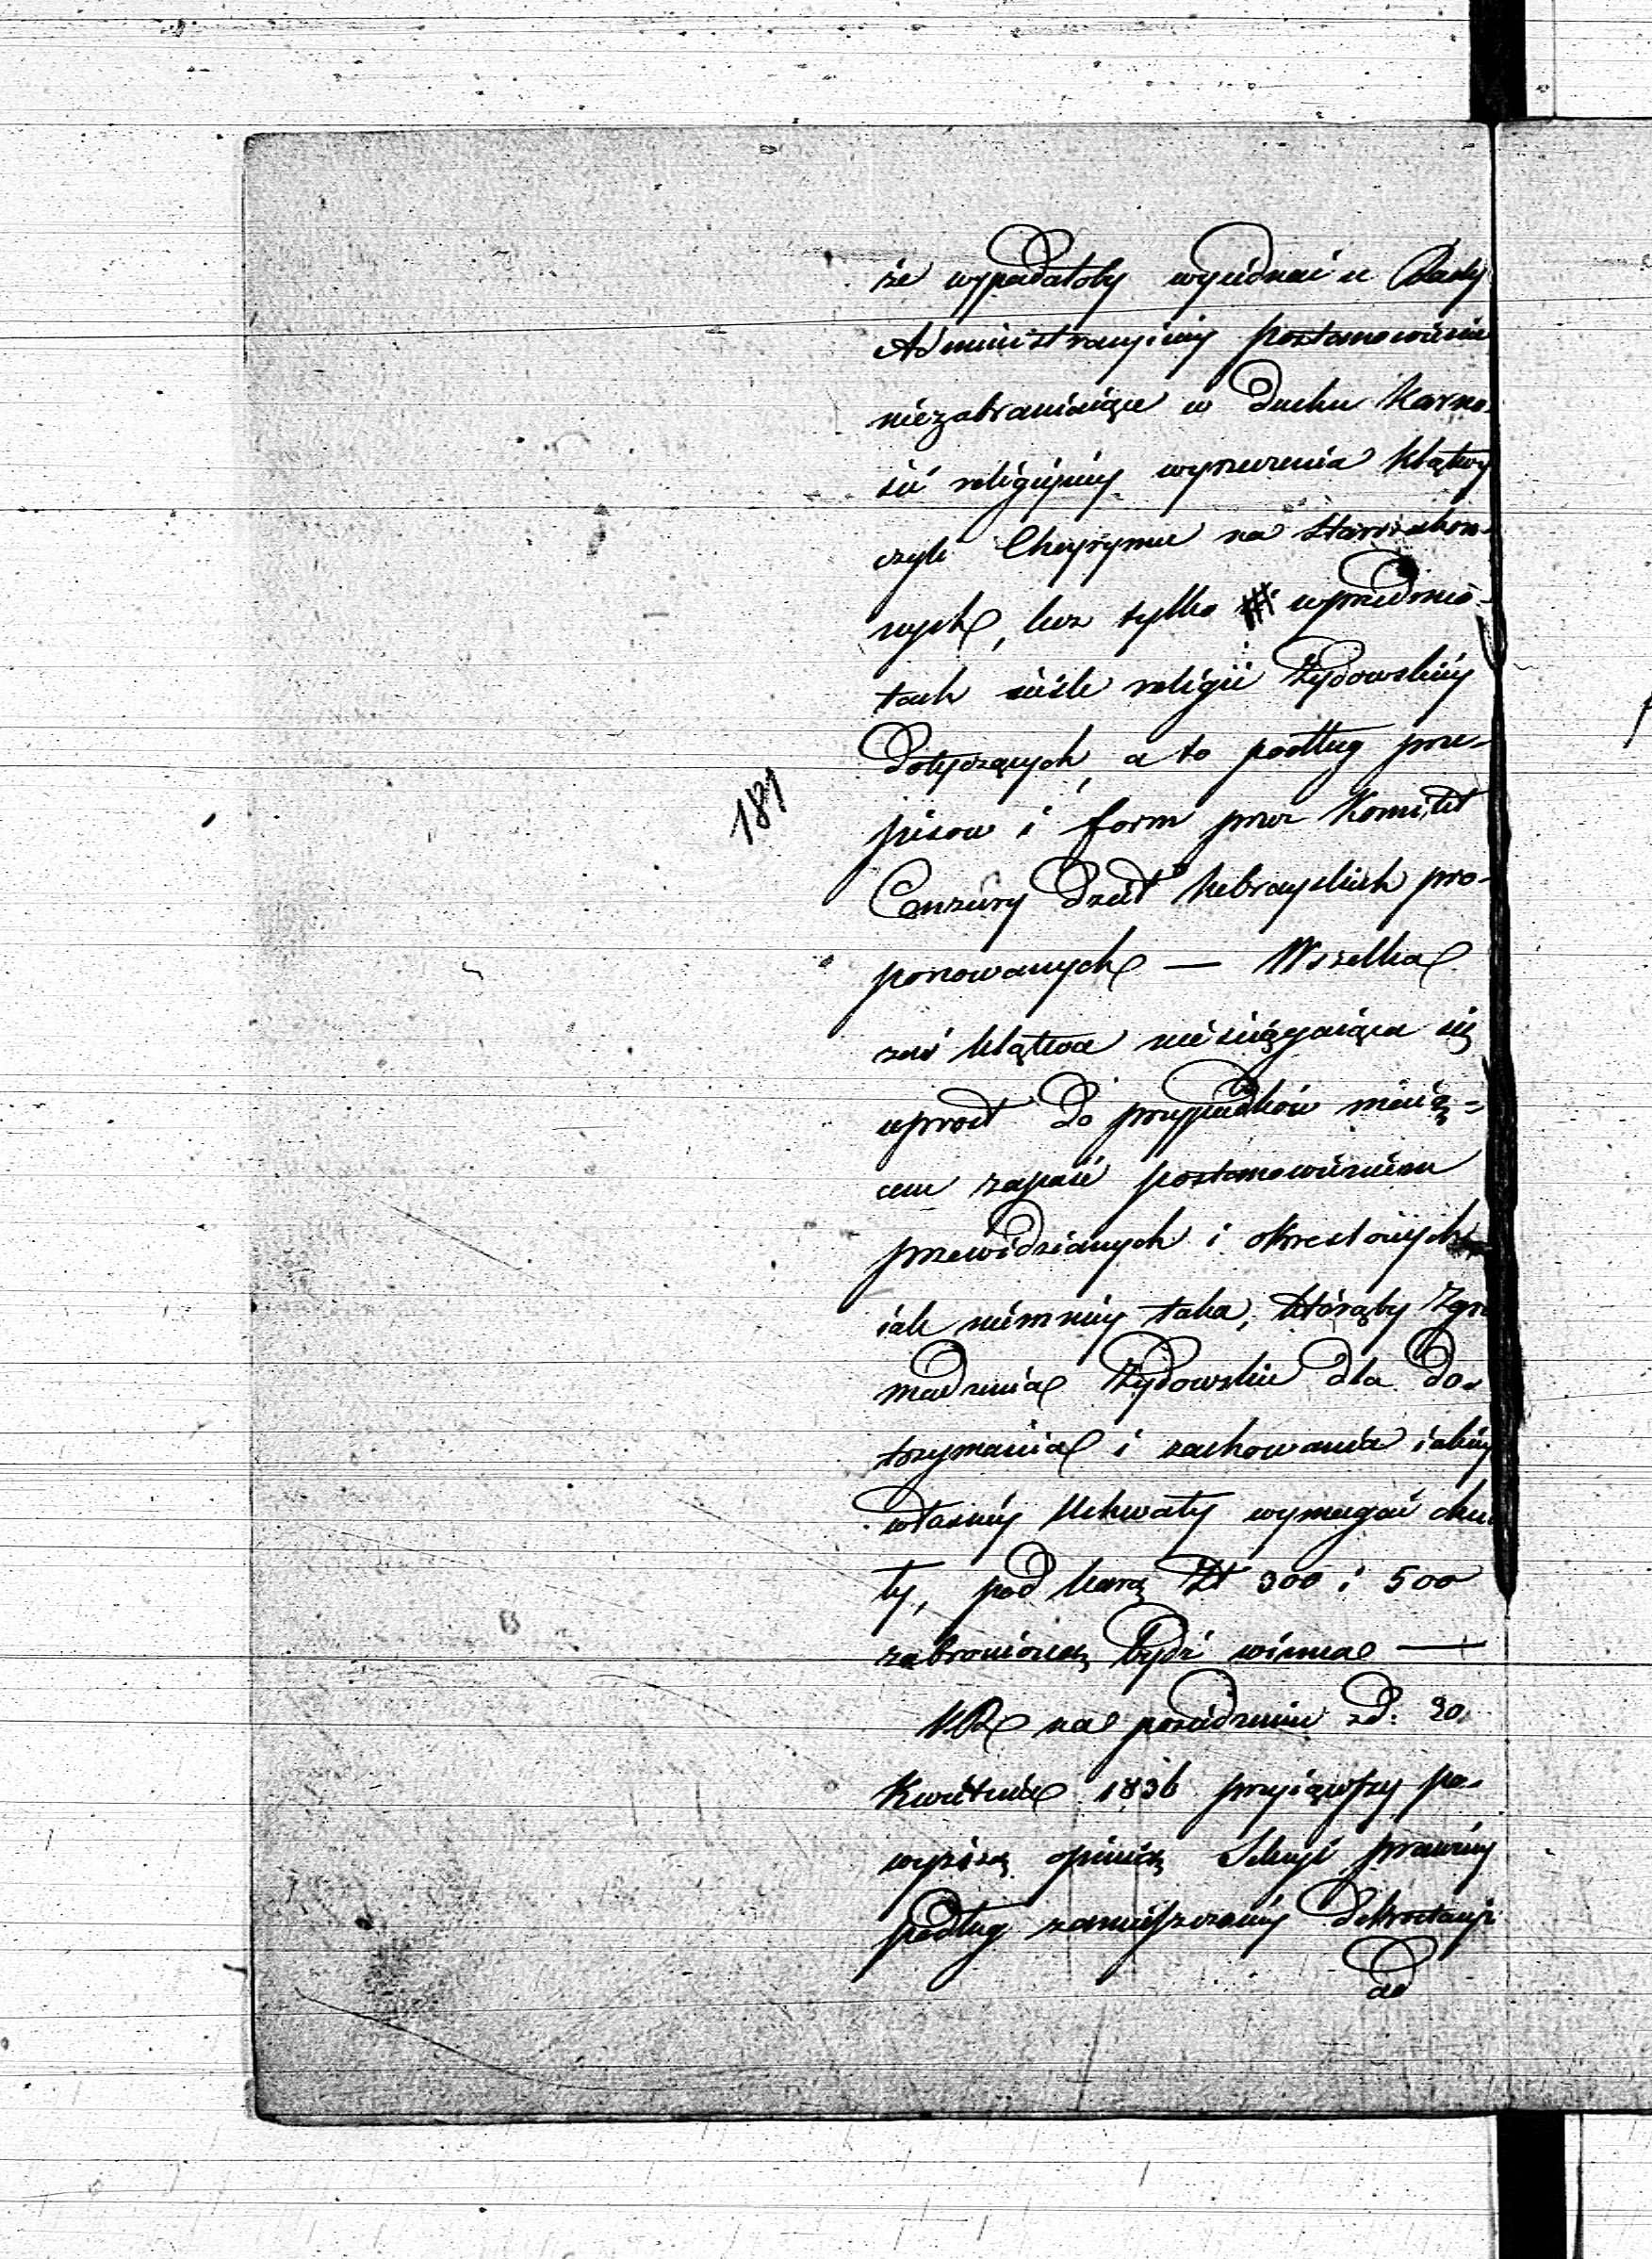 że wypadałoby wyiednać u Rady
Administracyiney postanowienie
niezabraniaiące w duchu karno
ści religiyney wyrzeczenia klątwy
czyli Cheyrymu na Starozakon-
nych, lecz tylko w przedmio-
tach ściśle religii Żydowskiey
dotyczących, a to podług prze-
pisow i form przez Komitet
181
Cenzury Dzieł hebrayskich pro-
ponowanych — Wszelka
zaś klątwa nieściągaiąca się
wprost do przypadków maią=
cem zapaść postanowieniem
przewidzianych i okreslonych
iak niemniey taka, którąby Zgro
madzenia Żydowskie dla do-
trzymania i zachowania iakiey
własney Uchwały wymagać chcia
ły, pod karą Zł 300 i 500
zabronioną bydź winna —
KR na posiedzeniu z d. 30
Kwietnia 1836 przyiąwszy po-
wyższą opinią Sekcyi prawney
podług zamieszczoney dekretacyi
do